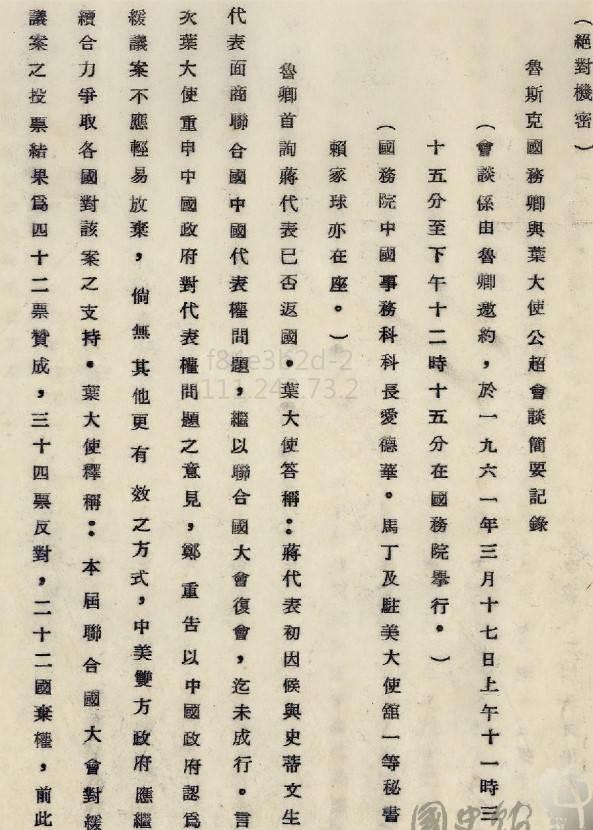 (絕對機密)
魯斯克國務卿與葉大使公超會談簡要記錄
(會談係由魯卿邀約,於一九六一年三月十七日上午十一時三
十五分至下午十二時十五分在國務院舉行。)
(國務院中國事務科科長愛德華。馬丁及駐美大使舘一等秘書
賴家球亦在座。)
魯卿首詢蔣代表已否返國。葉大使答稱:蔣代表初因候與史蒂文生
代表面商聯合國中國代表權問題,繼以聯合國大會復會,迄未成行。言
次葉大使重申中國政府對代表權問題之意見,鄭重告以中國政府認爲
緩議案不應輕易放棄,倘無其他更有效之方式,中美雙方政府應繼
續合力爭取各國對該案之支持。葉大使釋稱:本屆聯合國大會對緩
議案之投票結果爲四十二票贊成,三十四票反對,二十二國棄權,前此
國史館